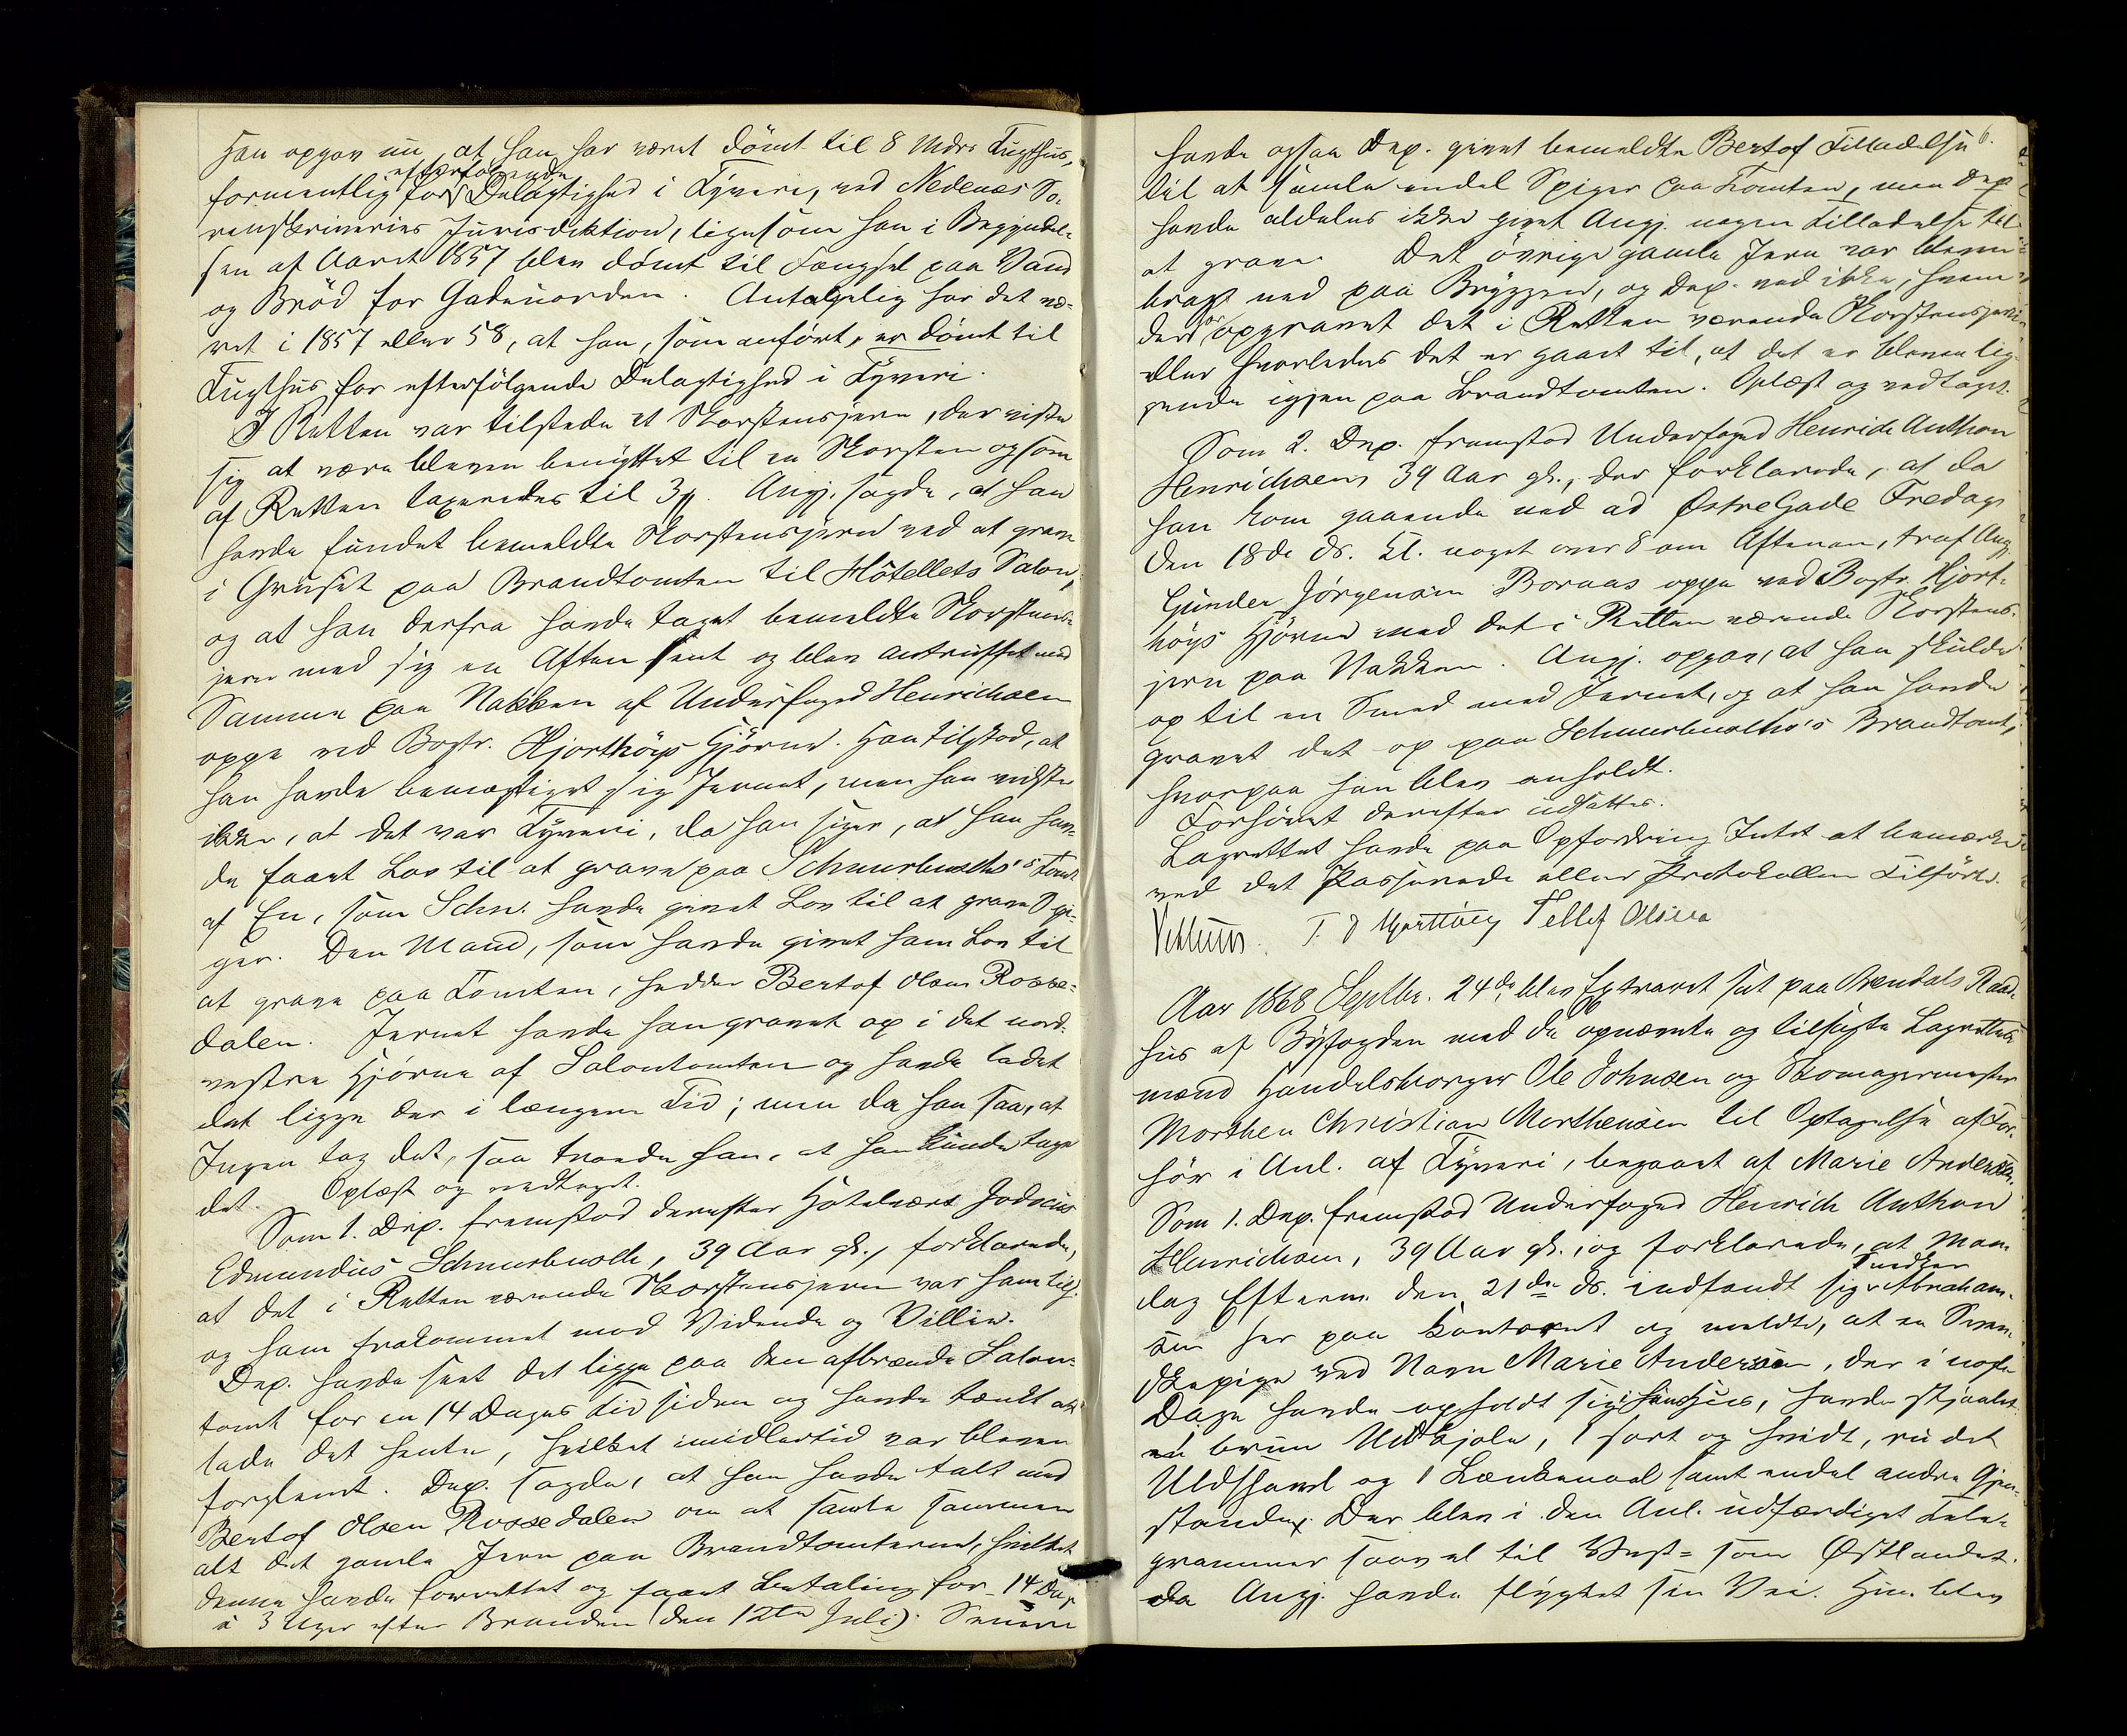 Han opgav nu, at han har været dømt til 8 Mdrs Tugthus,
efterfølgende
formentlig for Delagtighed i Tyveri, ved Nedenæs So-
renskriveries Jurisdiktion, ligesom han i Begyndel-
sen af Aaret 1857 blev dømt til Fængsel paa Vand
og Brød for Gadeuorden. Antagelig har det væ-
ret i 1857 eller 58, at han, som anført, er dømt til
Tugthus for efterfølgende Delagtighed i Tyveri.
I Retten var tilstede et Skorstensjern, der viste
sig at være bleven benyttet til en Skorsten og som
af Retten taxeredes til 3 Angj. sagde, at han
havde fundet bemeldte Skorstensjern ved at grave
i Gruset paa Brandtomten til Hôtellets Salon,
og at han derfra havde taget bemeldte Skorstens-
jern med sig en Aften sent og blev antruffet med
Samme paa Nakken af Underfoged Henrichsen
oppe ved Bogtr. Hjorthøys Hjørne. Han tilstod, at
han havde bemægtiget sig Jernet, men han vidste
ikke, at det var Tyveri, da han siger, at han hav-
de faaet Lov til at grave paa Schnurbusch's Tomt
af En, som Schn. havde givet Lov til at grave Spi-
ger. Den Mand, som havde givet ham Lov til
at grave paa Tomten, hedder Bertof Olsen Rosse-
dalen. Jernet havde han gravet op i det nord-
vestre Hjørne af Salontomten og havde ladet
det ligge der i længere Tid; men da han saa, at
Ingen tog det, saa troede han, at han kunde tage
det. Oplæst og vedtaget.
Som 1. Dep. fremstod derefter Hotelvært Jodocius
Edmundus Schnurbusch, 39 Aar gl., forklarede,
at det i Retten værende Skorstensjern var ham tilh.
og ham frakommet mod Vidende og Villie.
Dep. havde seet det ligge paa den afbrændte Salon-
tomt for en 14 Dages Tid siden og havde tænkt at
lade det hente, hvilket imidlertid var bleven
forglemt. Dep. sagde, at han havde talt med
Bertof Olsen Rossedalen om at samle sammen
alt det gamle Jern paa Brandtomterne, hvilket
denne havde forrettet og faaet Betaling for 14 Dag
à 3 Uger efter Branden (den 12te Juli). Senere
6.
havde ogsaa Dep. givet bemeldte Bertof Tilladelse
til at samle endel Spiger paa Tomten, men Dep.
havde aldeles ikke givet Angj. nogen Tilladelse til
at grave. Det øvrige gamle Jern var bleven
bragt ned paa Bryggen, og Dep. ved ikke, hvem
der har opgravet det i Retten værende Skorstensjern
eller hvorledes det er gaaet til, at det er bleven lig-
gende igjen paa Brandtomten. Oplæst og vedtaget.
Som 2. Dep. fremstod Underfoged Henrich Anthon
Henrichsen, 39 Aar gl., der forklarede, at da
han kom gaaende ned ad Østre Gade Fredag
den 18de ds. Kl. noget over 8 om Aftenen, traf Ang.
Gunder Jörgensen Boraas oppe ved Bogtr. Hjort-
høys Hjørne med det i Retten værende Skorstens-
jern paa Nakken. Angj. opgav, at han skulde
op til en Smed med Jernet, og at han havde
gravet det op paa Schnurbusch's Brandtomt,
hvorpaa han blev anholdt.
Forhøret derefter udsattes.
Lagrettet havde paa Opfordring Intet at bemærke
ved det Passerede eller Protokollen Tilførte.
Tellef Olsen
Aar 1868 Septbr. 24de blev Extraret sat paa Arendals Raad-
hus af Byfogden med de opnævnte og tilsagte Lagrettes-
mænd Handelsborger Ole Johnsen og Skomagermester
Morthen Christian Morthensen til Optagelse af For-
hør i Anl. af Tyveri, begaaet af Marie Andersen.
Som 1. Dep. fremstod Underfoged Henrich Anthon
Henrichsen, 39 Aar gl., og forklarede, at Man-
dag Efterm. den 21de ds. indfandt sig Abraham-
sen her paa Kontoret og meldte, at en Sven-
skepige ved Navn Marie Andersen, der i nogle
Dage havde opholdt sig i hans Hus, havde stjaalet
en brun Uldkjole, 1 sort og hvidt, rudet
Uldshawl og 1 Lænkenaal samt endel andre Gjen-
stande. Der blev i den Anl. udfærdiget Tele-
grammer saavel til Vest- som Østlandet.
da Angj. havde flygtet sin Vei. Hun blev